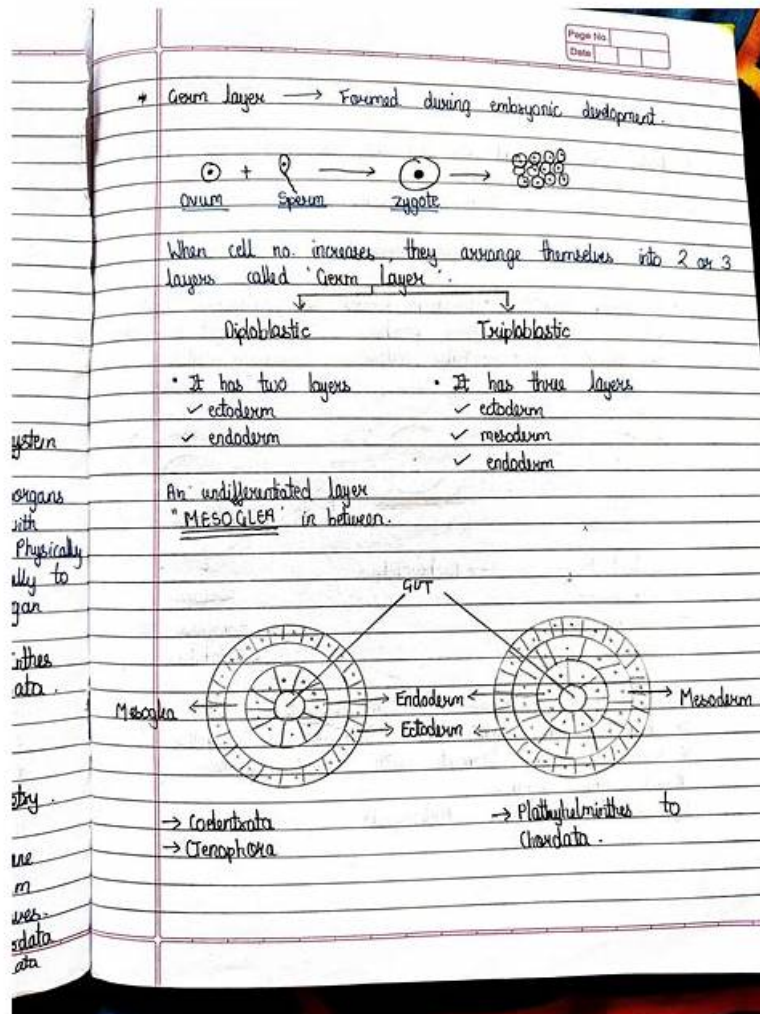 Page No.
Date
* Germ layer → Formed during embryonic devlopment.
+ → →
Ovum Sperm Zygote
When cell no. increases, they arrange themselves into 2 or 3
layers called 'Germ Layer'.
Diploblastic Triploblastic
• It has two layers • It has three layers
✓ ectoderm ✓ ectoderm
✓ endoderm ✓ mesoderm
✓ endoderm
An undifferentiated layer
"MESOGLEA" in between.
GUT
Mesoglea ← → Endoderm ← → Mesoderm
→ Ectoderm ←
→ Coelentrata → Plathyhelminthes to
→ Ctenophora Chordata.
ystem
organs
with
Physically
ally to
gan
inthes
ata.
etry.
are
m
ves.
rdata
ata